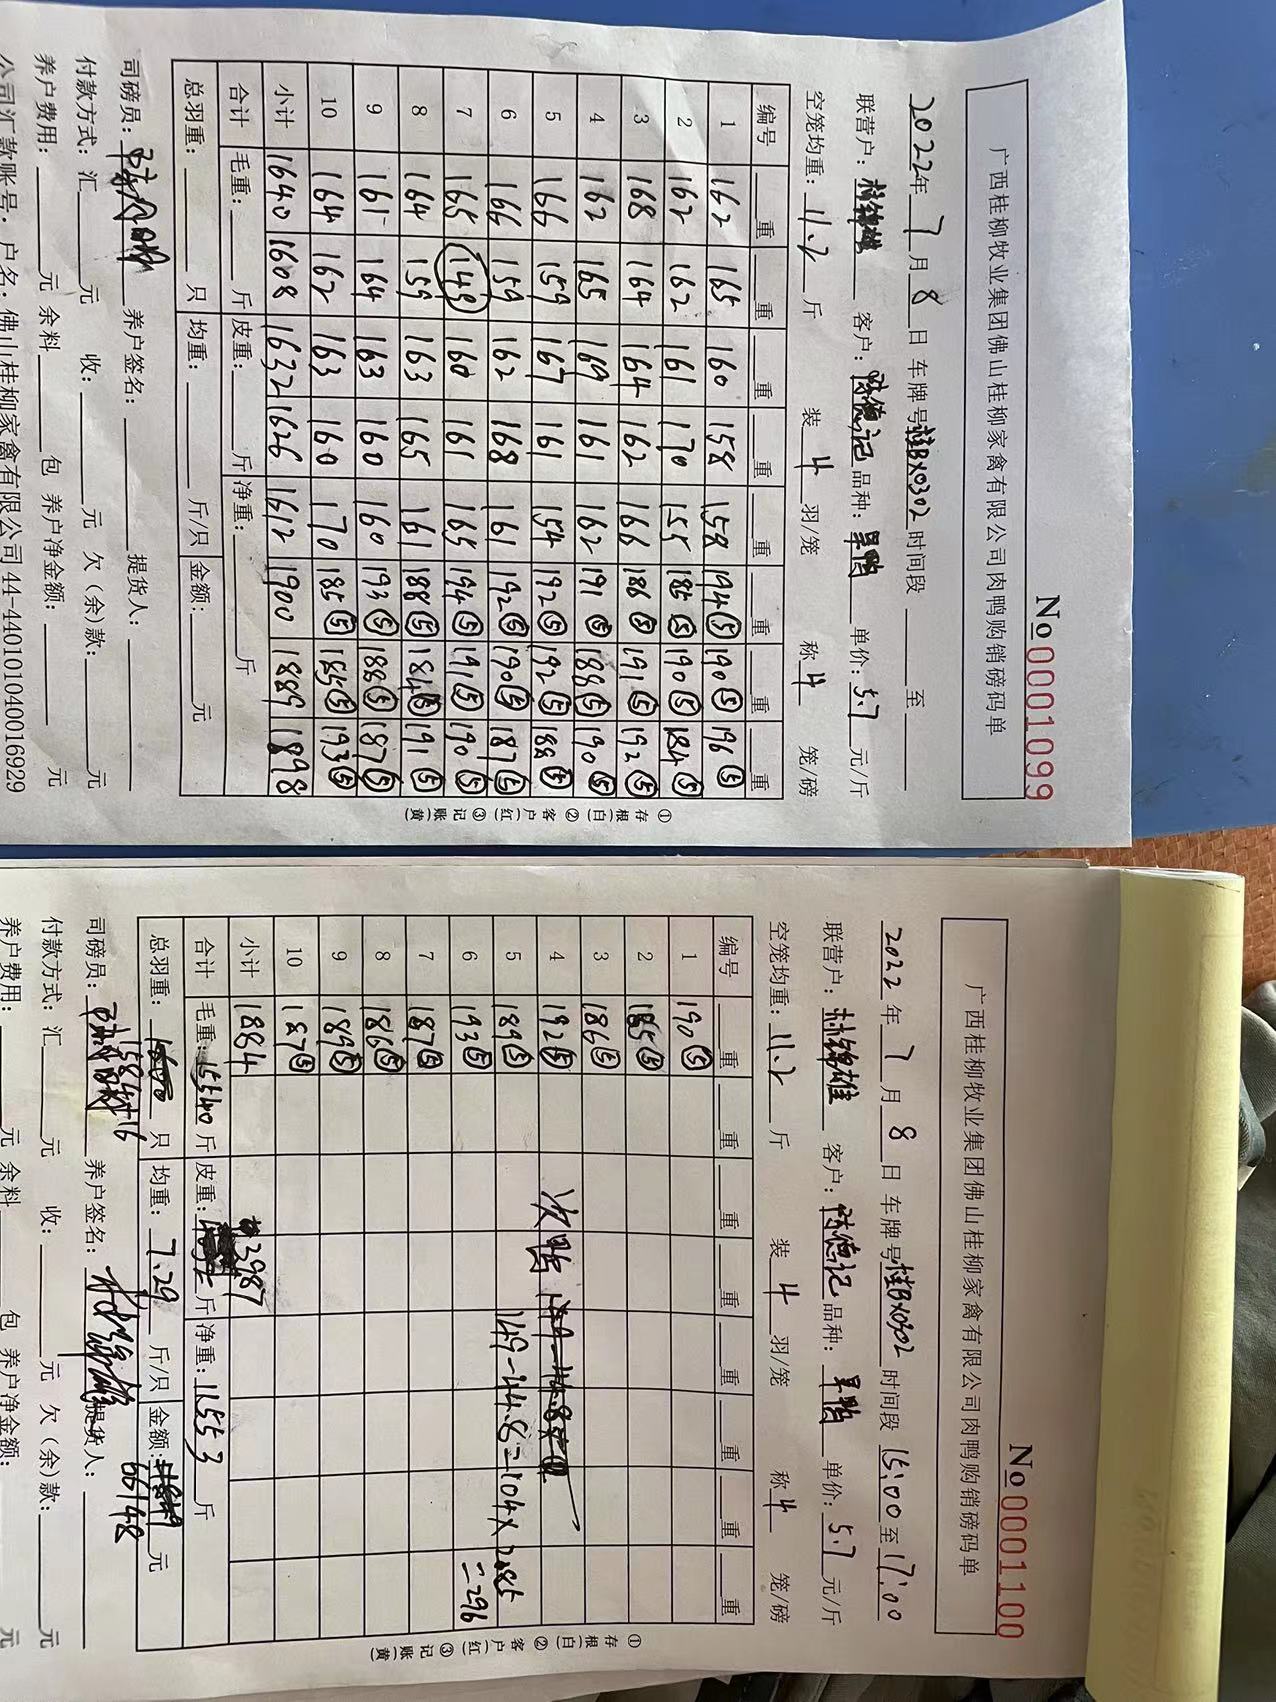 No 0001099
广西桂柳牧业集团佛山桂柳家禽有限公司肉鸭购销磅码单
2022年 7 月 8 日 车牌号 桂BX0302 时间段 至
联营户: 客户: 陈德记 品种: 旱鸭 单价: 5.7 元/斤
空笼均重: 11.2 斤 装 4 羽/笼 称 4 笼/磅
编号 重 重 重 重 重 重 重 重
1 162 165 160 158 158 194⑤ 190⑤ 196⑤
2 162 162 161 170 155 185⑤ 190⑤ 184⑤
3 168 164 164 162 166 186⑤ 191⑤ 192⑤
4 162 165 169 161 162 191⑤ 188⑤ 190⑤
5 166 159 167 161 154 192⑤ 192⑤ 188⑤
6 166 159 162 168 161 192⑤ 190⑤ 187⑤
7 165 149 160 161 165 194⑤ 191⑤ 190⑤
8 164 159 163 165 161 188⑤ 184⑤ 191⑤
9 161 164 163 160 160 193⑤ 188⑤ 187⑤
10 164 162 163 160 170 185⑤ 185⑤ 193⑤
小计 1640 1608 1632 1626 1612 1900 1889 1898
合计 毛重: 斤 皮重: 斤 净重: 斤
总羽重: 只 均重: 斤/只 金额: 元
司磅员: 养户签名: 提货人:
付款方式: 汇 元 收: 元 欠(余)款: 元
养户费用: 元 余料 包 养户净金额: 元
公司汇款账号: 户名: 佛山桂柳家禽有限公司44-440101040016929
①存根(白) ②客户(红) ③记账(黄)
No 0001100
广西桂柳牧业集团佛山桂柳家禽有限公司肉鸭购销磅码单
2022 年 7 月 8 日 车牌号 桂BX0302 时间段 15:00 至 17:00
联营户: 林锦雄 客户: 陈德记 品种: 旱鸭 单价: 5.7 元/斤
空笼均重: 11.2 斤 装 4 羽/笼 称 4 笼/磅
编号 重 重 重 重 重 重 重 重
1 190⑤
2 185⑤
3 186⑤
4 192⑤ 次鸭
5 189⑤ 149-44.8=104×2.85
6 193⑤ =296
7 187⑤
8 186⑤
9 189⑤
10 187⑤
小计 1884
2987
合计 毛重: 15540 斤 皮重: 斤 净重: 11553 斤
总羽重: 1584+16 只 均重: 7.29 斤/只 金额: 66148 元
司磅员: 养户签名: 提货人:
付款方式: 汇 元 收: 元 欠(余)款: 元
养户费用: 元 余料 包 养户净金额: 元
①存根(白) ②客户(红) ③记账(黄)